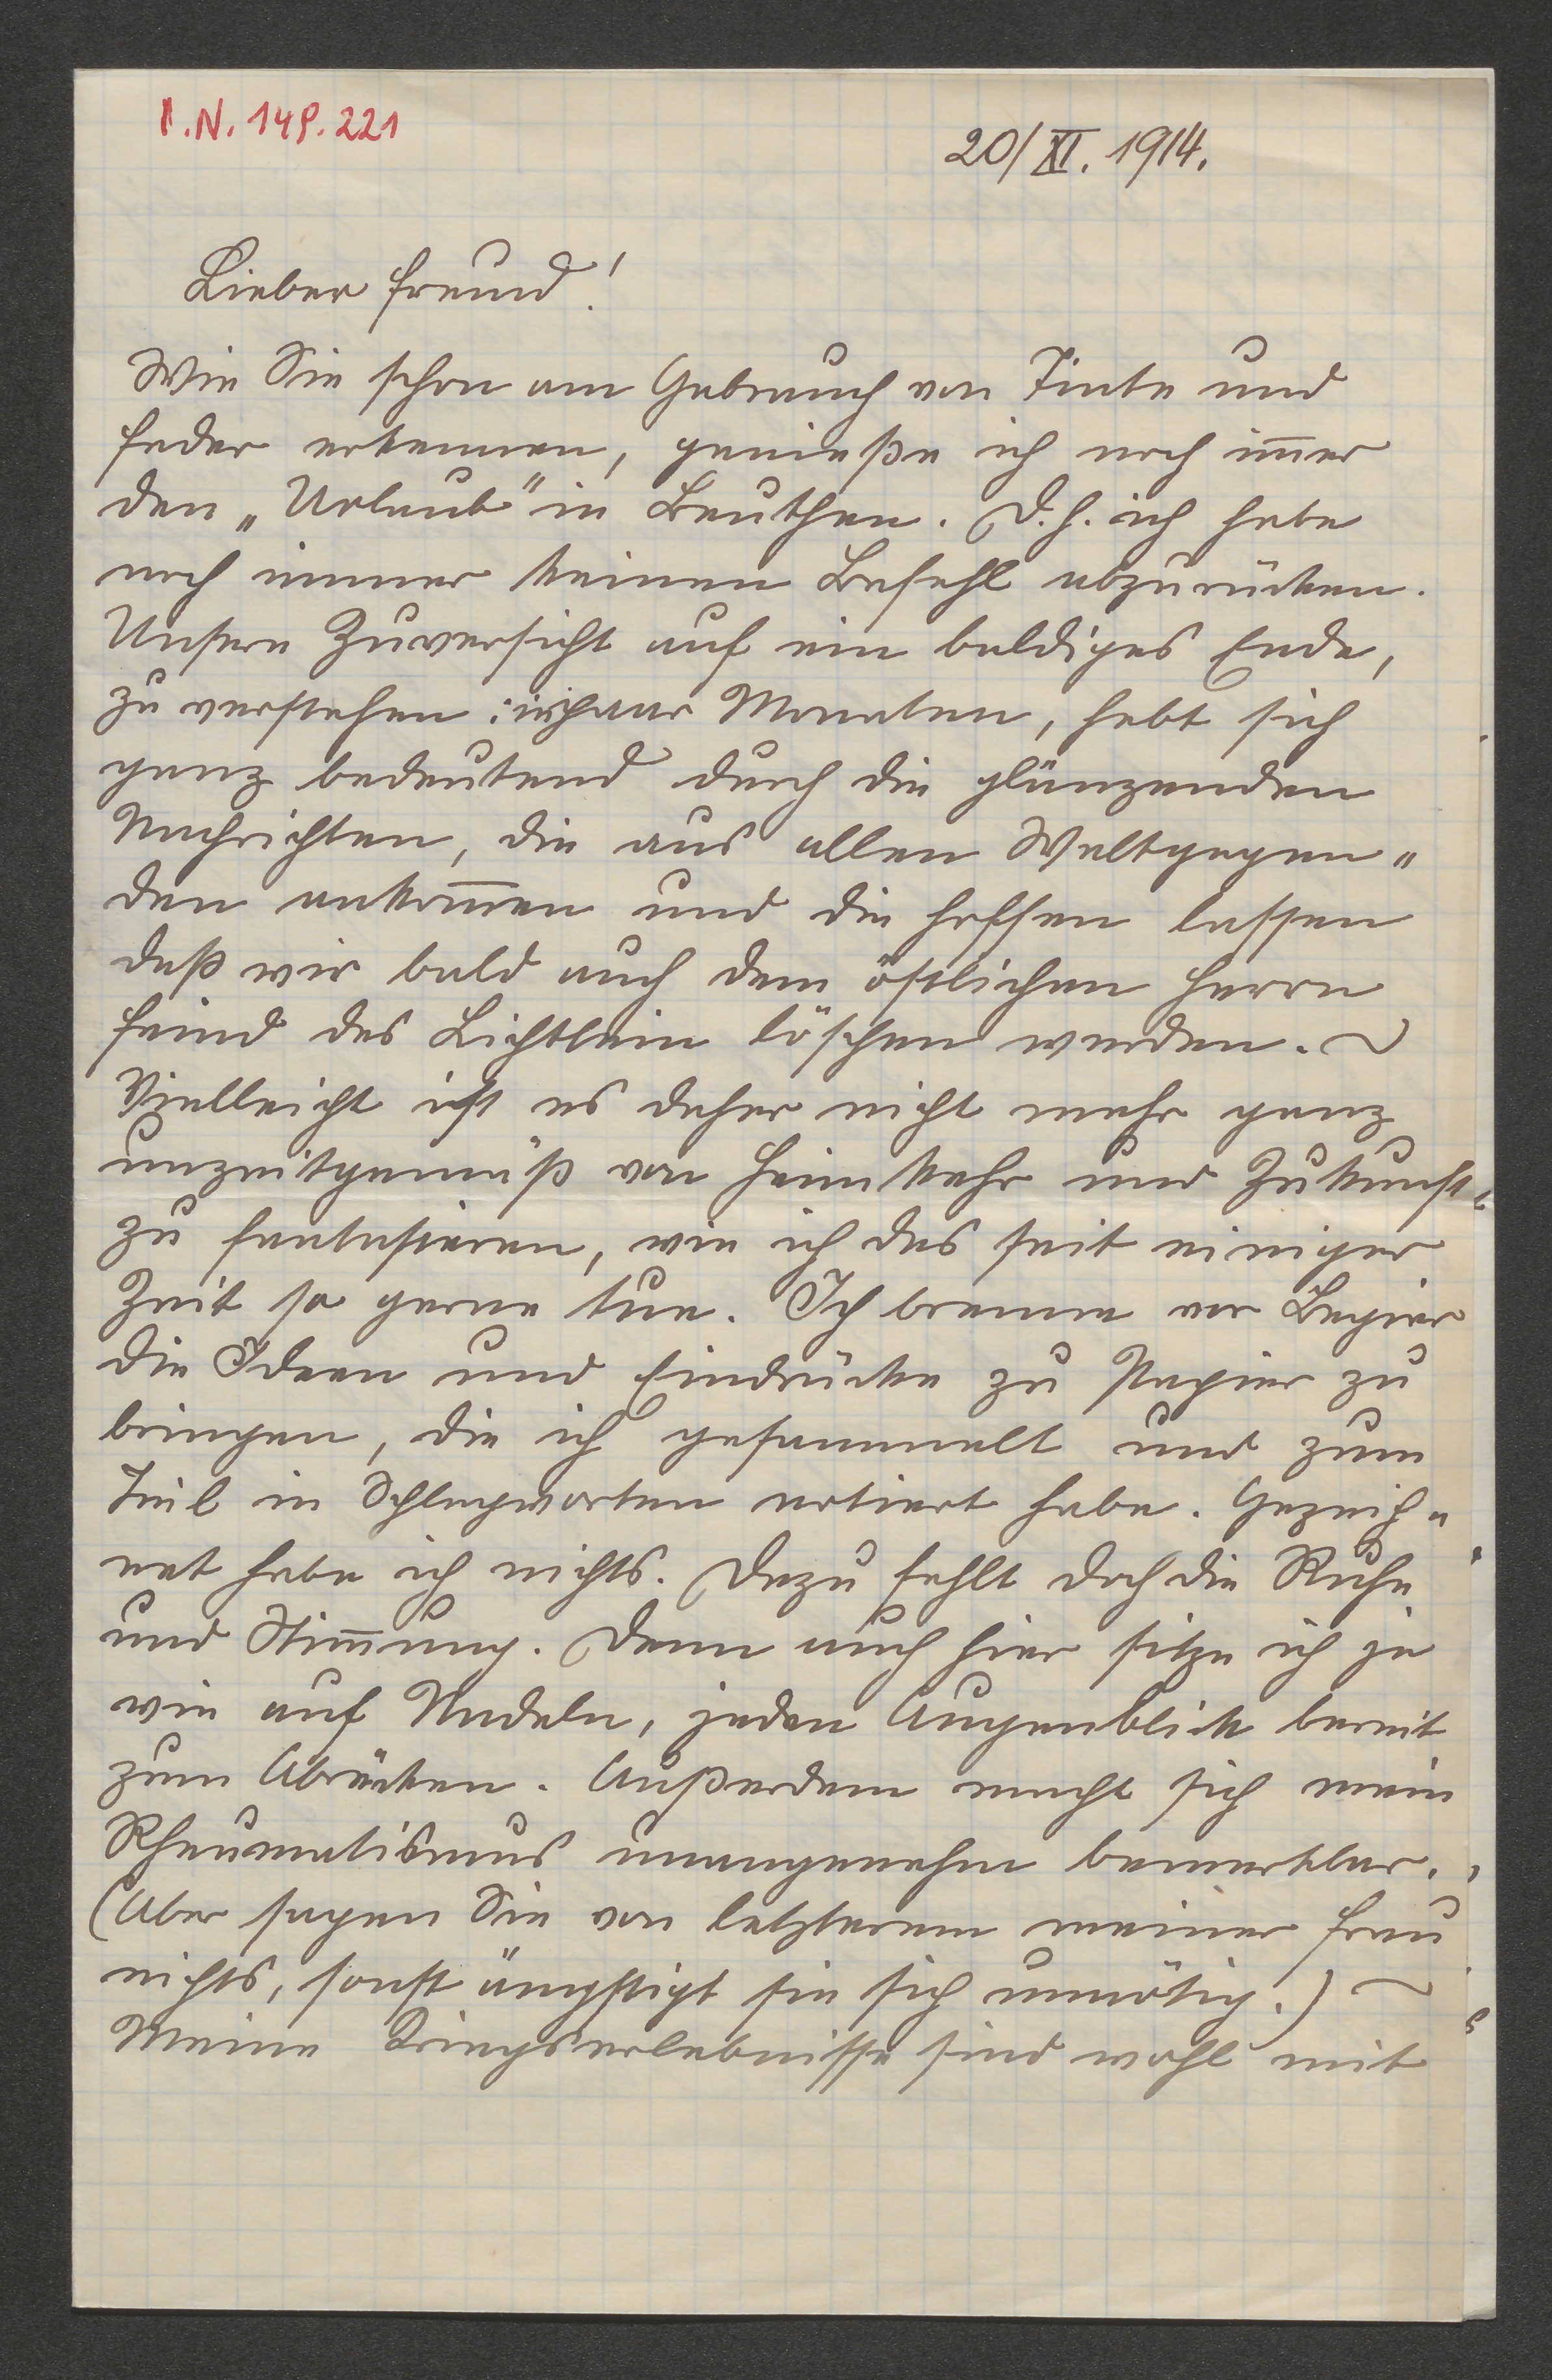 I.N. 149.221
20/XI. 1914.
Lieber Freund!
Wie Sie schon am Gebrauch von Tinte und
Feder erkennen, genieße ich noch im̄er
den „Urlaub" in Beuthen. D. h. ich habe
noch immer keinen Befehl abzurücken.
Unsere Zuversicht auf ein baldiges Ende,
zu verstehen: in paar Monaten, hebt sich
ganz bedeutend durch die glänzenden
Nachrichten, die aus allen Weltgegen„
den ankom̄en und die hoffen lassen
daß wir bald auch dem östlichen Herrn
Feind das Lichtlein löschen werden. ~
Vielleicht ist es daher nicht mehr ganz
unzeitgemäß von Heimkehr und Zukunft
zu fantasieren, wie ich das seit einiger
Zeit so gerne tue. Ich brenne vor Begier
die Ideen und Eindrücke zu Papier zu
bringen, die ich gesammelt und zum
Teil in Schlagworten notiert habe. Gezeich„
net habe ich nichts. Dazu fehlt doch die Ruhe
und Stim̄ung. Denn auch hier sitze ich ja
wie auf Nadeln, jeden Augenblick bereit
zum Abrücken. Außerdem macht sich mein
Rheumatismus unangenehm bemerkbar.
(Aber sagen Sie von letzterem meiner Frau
nichts, sonst ängstigt sie sich unnötig.) ~
Meine Kriegserlebnisse sind wohl mit